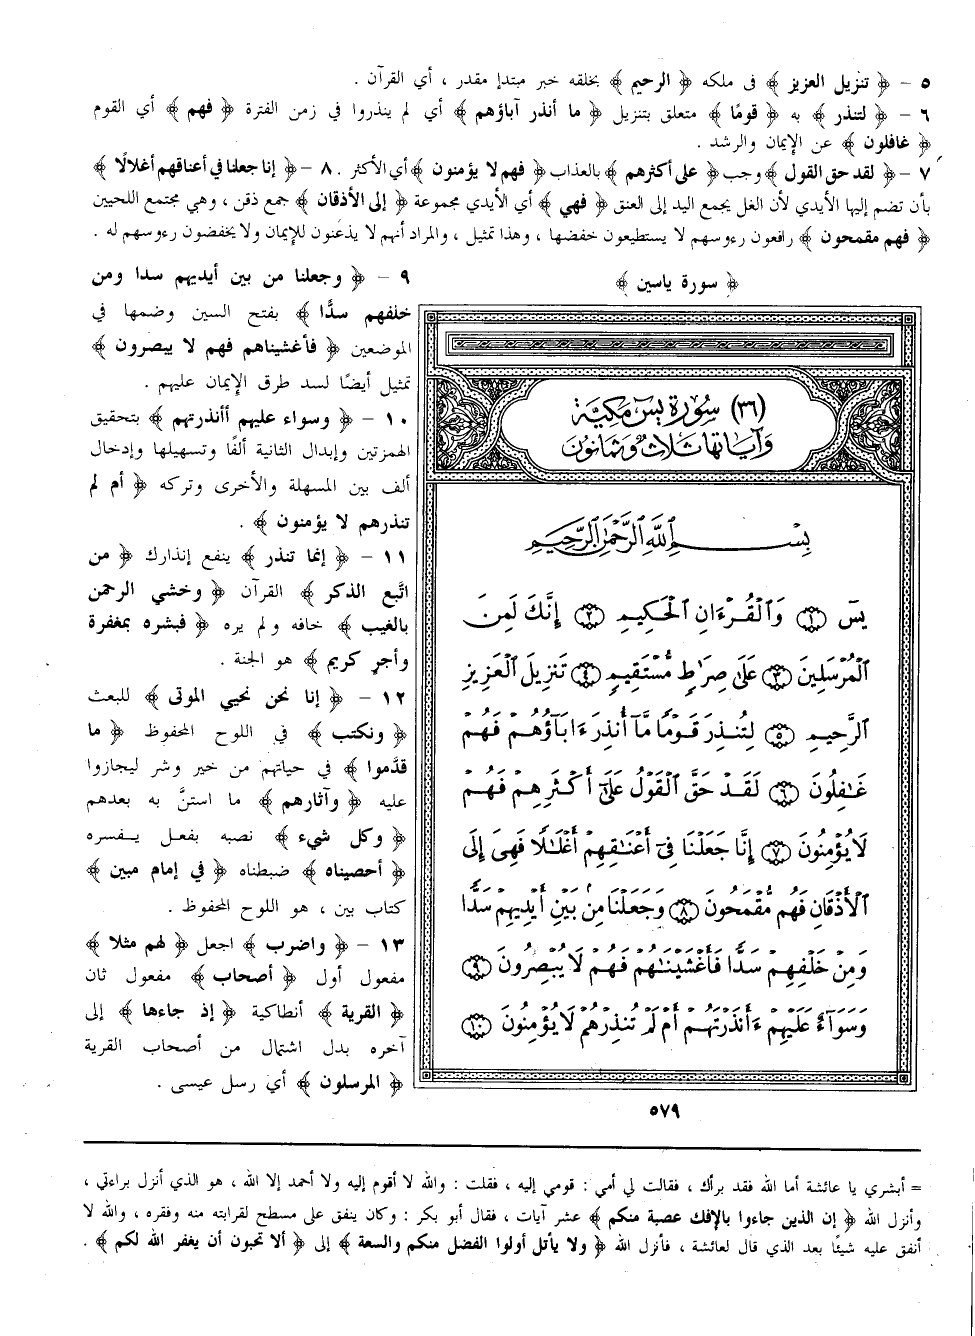 ٥ – ﴿ تنزيل العزيز ﴾ فى ملكه ﴿ الرحيم ﴾ بخلقه خبر مبتدإ مقدر ، أي القرآن .
٦ – ﴿ لتنذر ﴾ به ﴿ قومًا ﴾ متعلق بتنزيل ﴿ ما أنذر آباؤهم ﴾ أي لم ينذروا في زمن الفترة ﴿ فهم ﴾ أي القوم
﴿ غافلون ﴾ عن الإيمان والرشد .
٧ – ﴿ لقد حق القول ﴾ وجب ﴿ على أكثرهم ﴾ بالعذاب ﴿ فهم لا يؤمنون ﴾ أي الأكثر . ٨ – ﴿ إنا جعلنا في أعناقهم أغلالًا ﴾
بأن تضم إليها الأيدي لأن الغل يجمع اليد إلى العنق ﴿ فهي ﴾ أي الأيدي مجموعة ﴿ إلى الأذقان ﴾ جمع ذقن ، وهي مجتمع اللحيين
﴿ فهم مقمحون ﴾ رافعون رءوسهم لا يستطيعون خفضها ، وهذا تمثيل ، والمراد أنهم لا يذعنون للإيمان ولا يخفضون رءوسهم له .
﴿ سورة ياسين ﴾
(٣٦) سورة يس مكية
وآياتها ثلاث وثمانون
بِسْمِ اللَّهِ الرَّحْمَٰنِ الرَّحِيمِ
يسٓ ١ وَٱلْقُرْءَانِ ٱلْحَكِيمِ ٢ إِنَّكَ لَمِنَ
ٱلْمُرْسَلِينَ ٣ عَلَىٰ صِرَٰطٍ مُّسْتَقِيمٍ ٤ تَنزِيلَ ٱلْعَزِيزِ
ٱلرَّحِيمِ ٥ لِتُنذِرَ قَوْمًا مَّآ أُنذِرَ ءَابَآؤُهُمْ فَهُمْ
غَٰفِلُونَ ٦ لَقَدْ حَقَّ ٱلْقَوْلُ عَلَىٰٓ أَكْثَرِهِمْ فَهُمْ
لَا يُؤْمِنُونَ ٧ إِنَّا جَعَلْنَا فِىٓ أَعْنَٰقِهِمْ أَغْلَٰلًا فَهِىَ إِلَى
ٱلْأَذْقَانِ فَهُم مُّقْمَحُونَ ٨ وَجَعَلْنَا مِنۢ بَيْنِ أَيْدِيهِمْ سَدًّا
وَمِنْ خَلْفِهِمْ سَدًّا فَأَغْشَيْنَٰهُمْ فَهُمْ لَا يُبْصِرُونَ ٩
وَسَوَآءٌ عَلَيْهِمْ ءَأَنذَرْتَهُمْ أَمْ لَمْ تُنذِرْهُمْ لَا يُؤْمِنُونَ ١٠
٥٧٩
٩ – ﴿ وجعلنا من بين أيديهم سدا ومن
خلفهم سدًّا ﴾ بفتح السين وضمها في
الموضعين ﴿ فأغشيناهم فهم لا يبصرون ﴾
تمثيل أيضًا لسد طرق الإيمان عليهم .
١٠ – ﴿ وسواء عليهم أأنذرتهم ﴾ بتحقيق
الهمزتين وإبدال الثانية ألفًا وتسهيلها وإدخال
ألف بين المسهلة والأخرى وتركه ﴿ أم لم
تنذرهم لا يؤمنون ﴾ .
١١ – ﴿ إنما تنذر ﴾ ينفع إنذارك ﴿ من
اتَّبع الذكر ﴾ القرآن ﴿ وخشي الرحمن
بالغيب ﴾ خافه ولم يره ﴿ فبشره بمغفرة
وأجرٍ كريم ﴾ هو الجنة .
١٢ – ﴿ إنا نحن نحيي الموتى ﴾ للبعث
﴿ ونكتب ﴾ في اللوح المحفوظ ﴿ ما
قدَّموا ﴾ في حياتهم من خير وشر ليجازوا
عليه ﴿ وآثارهم ﴾ ما استنَّ به بعدهم
﴿ وكل شيء ﴾ نصبه بفعل يفسره
﴿ أحصيناه ﴾ ضبطناه ﴿ في إمام مبين ﴾
كتاب بين ، هو اللوح المحفوظ .
١٣ – ﴿ واضرب ﴾ اجعل ﴿ لهم مثلا ﴾
مفعول أول ﴿ أصحاب ﴾ مفعول ثان
﴿ القرية ﴾ أنطاكية ﴿ إذ جاءها ﴾ إلى
آخره بدل اشتمال من أصحاب القرية
﴿ المرسلون ﴾ أي رسل عيسى .
= أبشري يا عائشة أما الله فقد برأك ، فقالت لي أمي : قومي إليه ، فقلت : والله لا أقوم إليه ولا أحمد إلا الله ، هو الذي أنزل براءتي ،
وأنزل الله ﴿ إن الذين جاءوا بالإفك عصبة منكم ﴾ عشر آيات ، فقال أبو بكر : وكان ينفق على مسطح لقرابته منه وفقره ، والله لا
أنفق عليه شيئًا بعد الذي قال لعائشة ، فأنزل الله ﴿ ولا يأتل أولوا الفضل منكم والسعة ﴾ إلى ﴿ ألا تحبون أن يغفر الله لكم ﴾ .